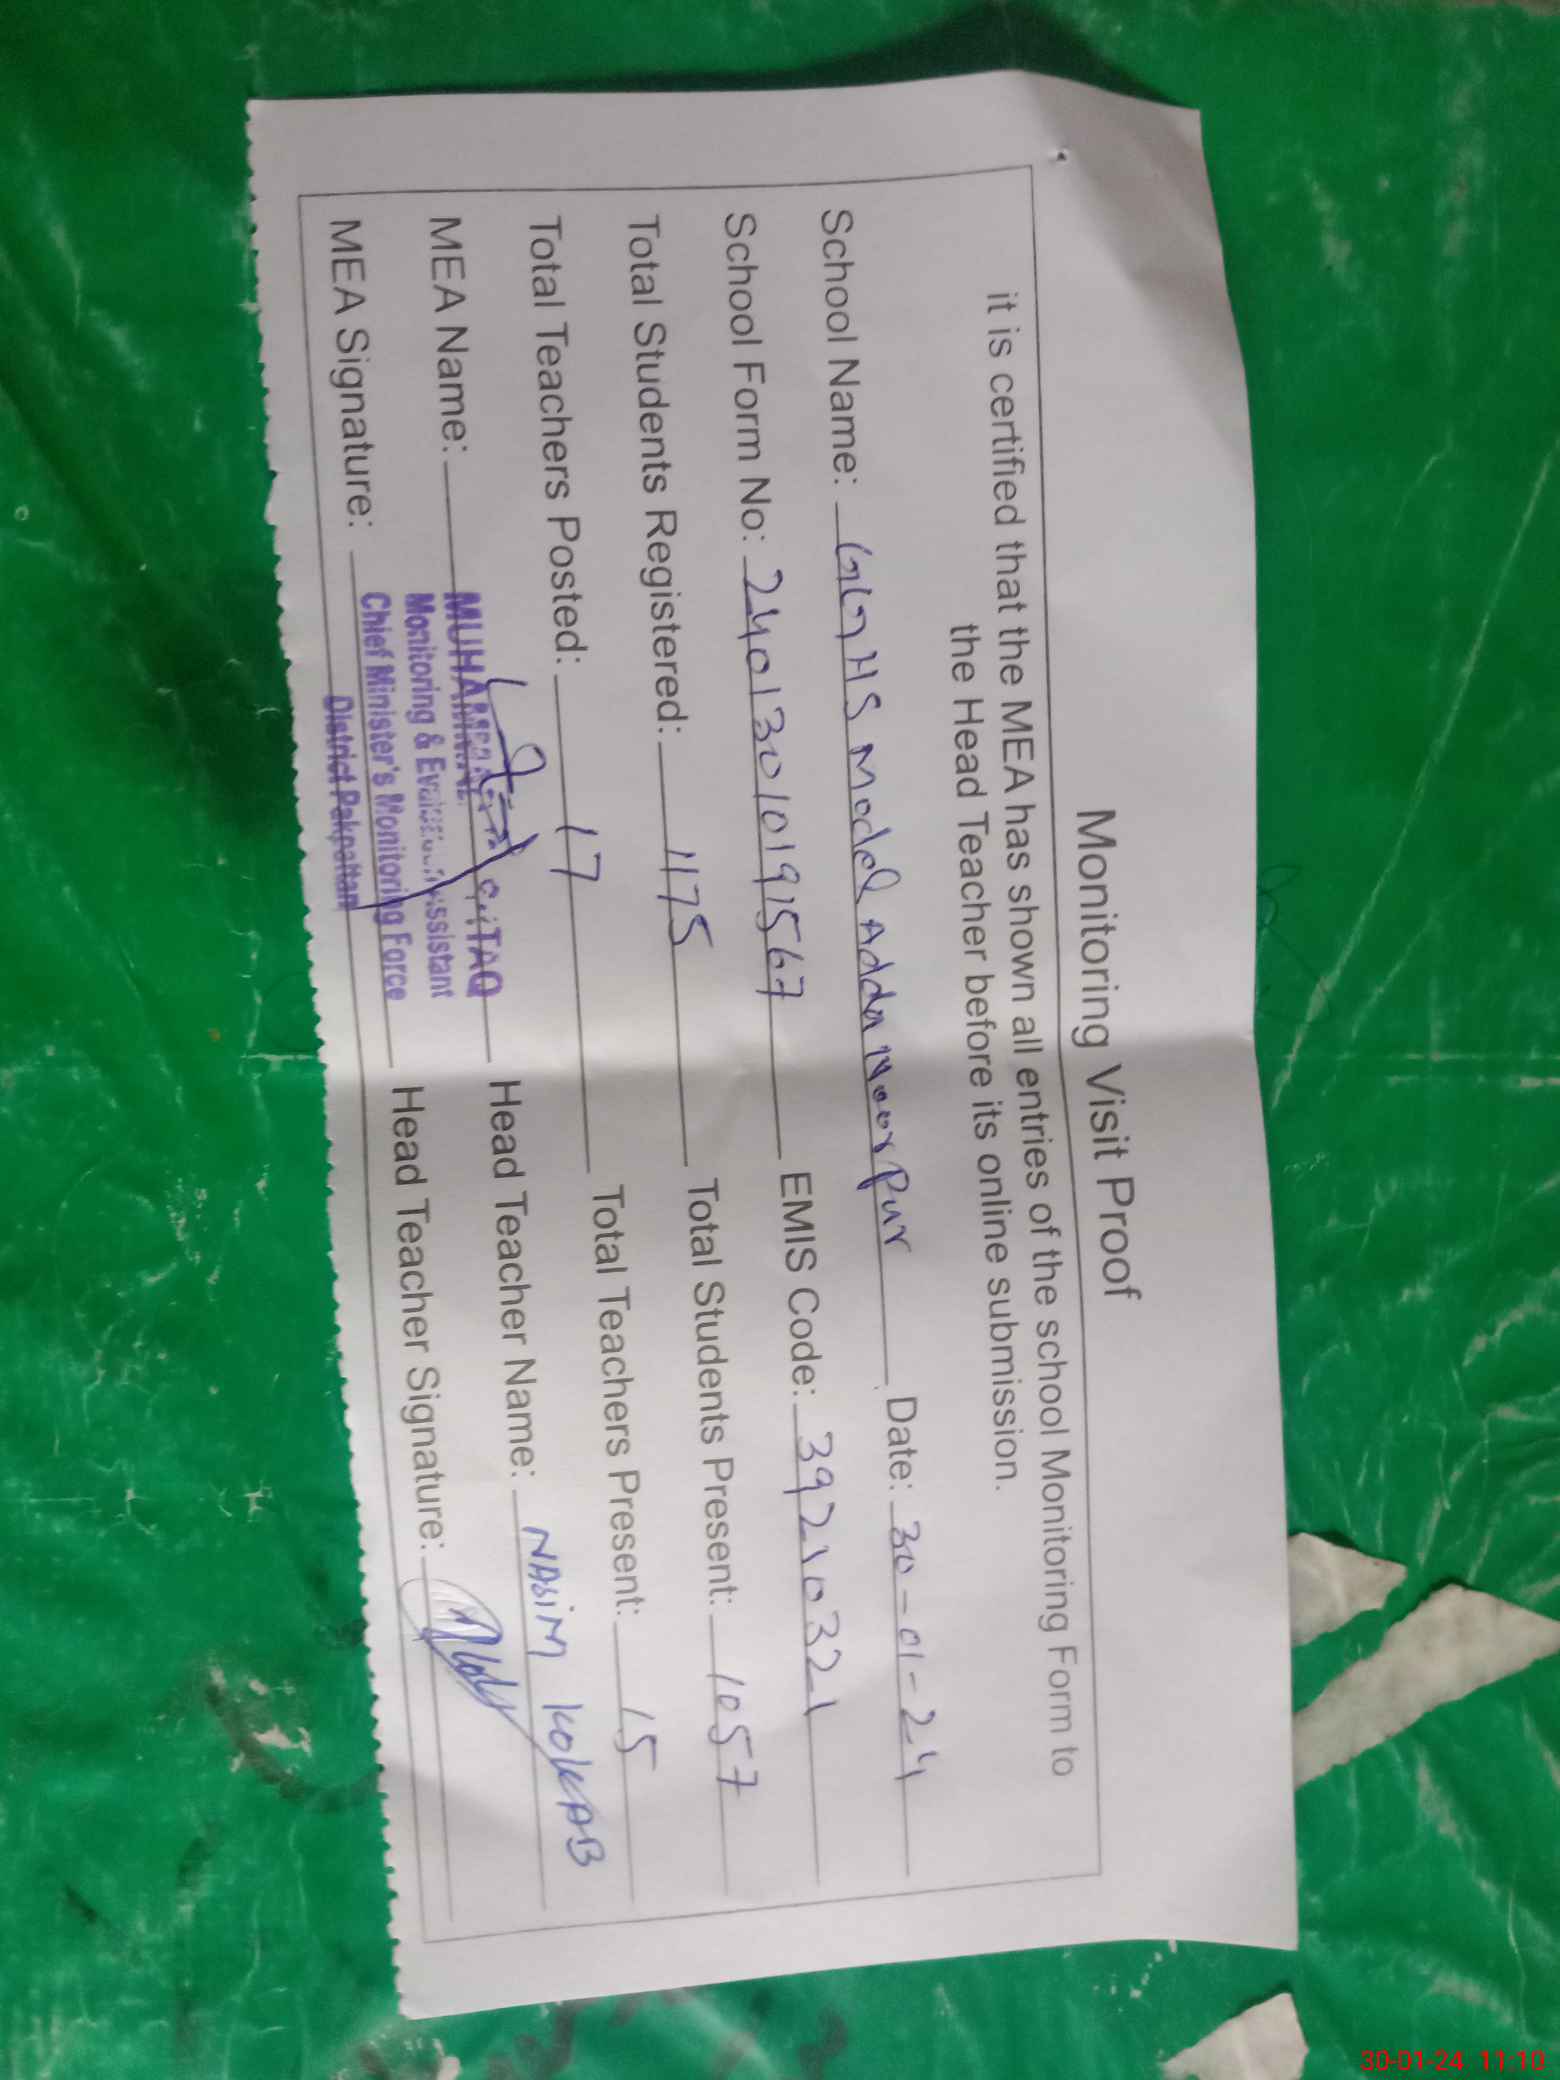 Monitoring Visit Proof
it is certified that the MEA has shown all entries of the school Monitoring Form to
the Head Teacher before its online submission.
School Name: GGHS Model Adda Noor Pur Date: 30-01-24
School Form No: 24013010191567 EMIS Code: 39210321
Total Students Registered: 1175 Total Students Present: 1057
Total Teachers Posted: 17 Total Teachers Present: 15
MEA Name: MUHAMMAD Head Teacher Name: NASIM KOKAB
Monitoring & Evaluation Assistant
MEA Signature: Chief Minister's Monitoring Force Head Teacher Signature:
District Pakpattan
30-01-24 11:10